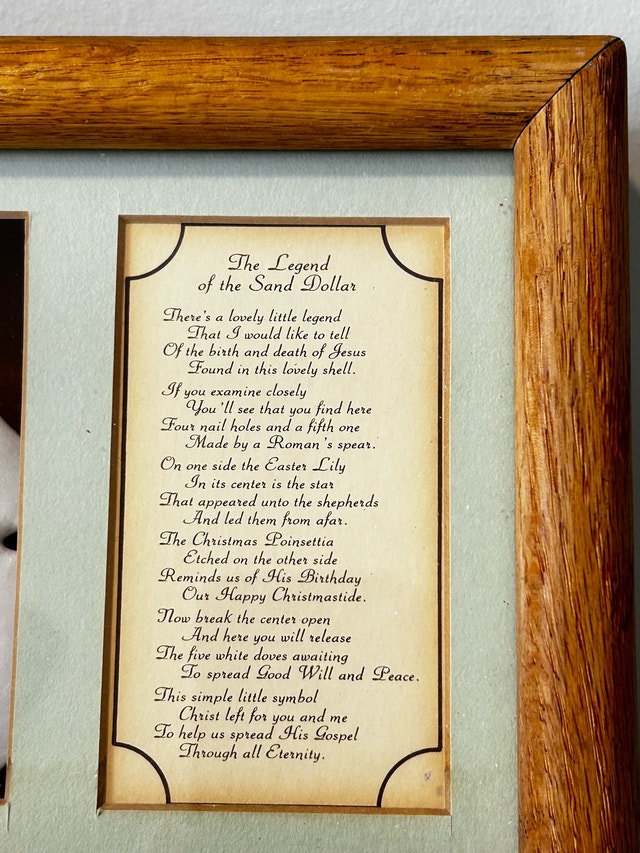 The Legend
of the Sand Dollar
There's a lovely little legend
That I would like to tell
Of the birth and death of Jesus
Found in this lovely shell.
If you examine closely
You'll see that you find here
Four nail holes and a fifth one
Made by a Roman's spear.
On one side the Easter Lily
In its center is the star
That appeared unto the shepherds
And led them from afar.
The Christmas Poinsettia
Etched on the other side
Reminds us of His Birthday
Our Happy Christmastide.
Now break the center open
And here you will release
The five white doves awaiting
To spread Good Will and Peace.
This simple little symbol
Christ left for you and me
To help us spread His Gospel
Through all Eternity.